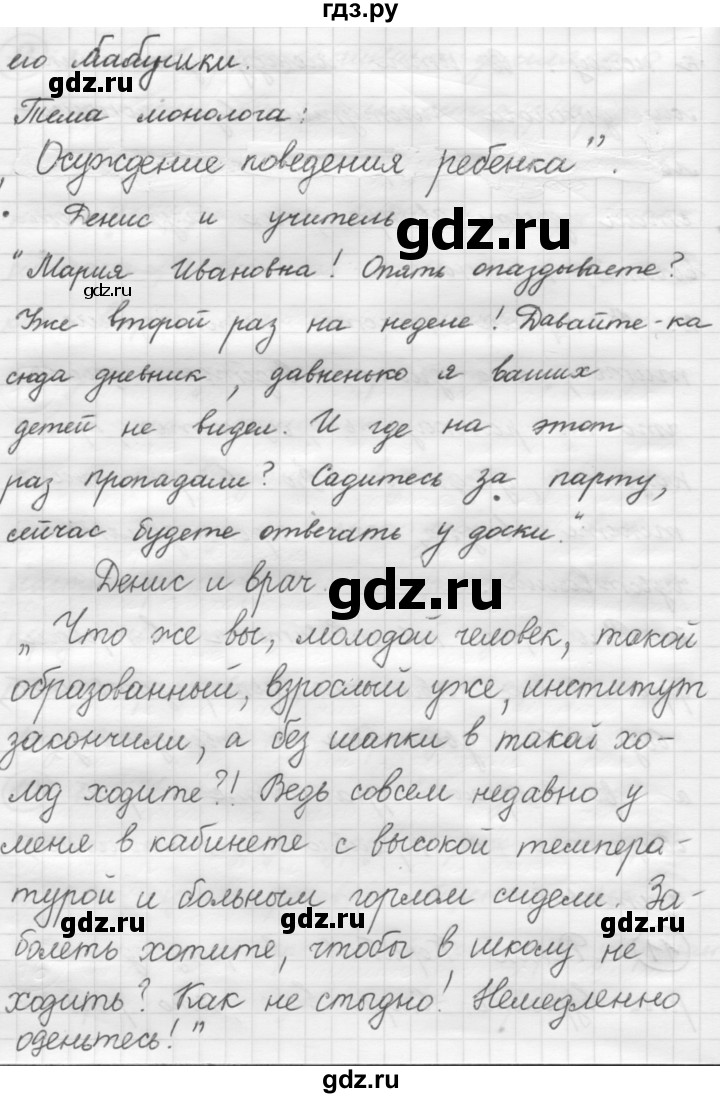 гдз.ру
его бабушки.
gdz.ru
Тема монолога:
„Осуждение поведения ребенка”.
• Денис и учитель
gdz.ru
"Мария Ивановна! Опять опаздываете?
gdz.ru
Уже второй раз на неделе! Давайте-ка
сюда дневник, давненько я ваших
детей не видел. И где на этот
раз пропадали? Садитесь за парту,
сейчас будете отвечать у доски."
Денис и врач.
gdz.ru
„Что же вы, молодой человек, такой
образованный, взрослый уже, институт
закончили, а без шапки в такой хо-
лод ходите?! Ведь совсем недавно у
меня в кабинете с высокой темпера-
турой и больным горлом сидели. За-
gdz.ru gdz.ru gdz.ru
болеть хотите, чтобы в школу не
ходить? Как не стыдно! Немедленно
оденьтесь!”
gdz.ru